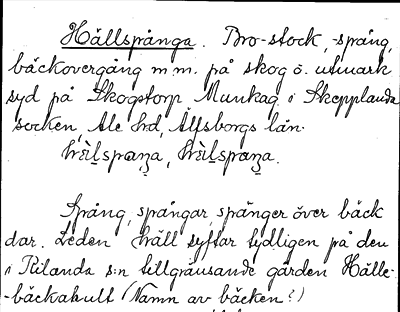 Hällspånga. Bro-stock, -spång,
bäckövergång m m. på skog o. utmark
syd på Skogstorp, Munkag, i Skepplanda
socken, Ale hd, Älfsborgs län.
Spång, spångar, spänger över bäck
dar. Leden häll syftar tydligen på den
i Rilanda s:n tillgränsande gården Hälle-
-bäckahult (Namn av bäcken?)